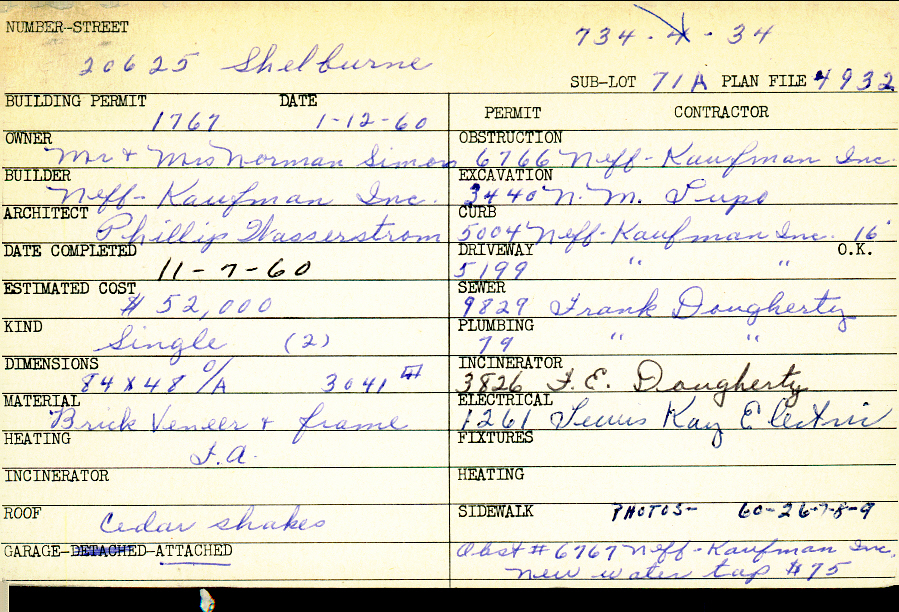 NUMBER-STREET
734-4-34
20625 Shelburne
SUB-LOT 71A PLAN FILE 4932
BUILDING PERMIT DATE
1767 1-12-60
PERMIT CONTRACTOR
OWNER
Mr & Mrs Norman Simon
BUILDER
Neff-Kaufman Inc.
ARCHITECT
Phillip Wasserstrom
DATE COMPLETED
11-7-60
ESTIMATED COST
$52,000
KIND
Single (2)
DIMENSIONS
84 x 48 O/A 3041
MATERIAL
Brick Veneer & frame
HEATING
F.A.
INCINERATOR
ROOF
Cedar shakes
GARAGE-DETACHED-ATTACHED
OBSTRUCTION
6766 Neff-Kaufman Inc.
EXCAVATION
3440 N.M. Pupo
CURB
5004 Neff-Kaufman Inc. 16'
DRIVEWAY O.K.
5199 " "
SEWER
9829 Frank Dougherty
PLUMBING
79 " "
INCINERATOR
3826 F.E. Dougherty
ELECTRICAL
1261 Kay Electric
FIXTURES
HEATING
SIDEWALK PHOTOS- 60-26-7-8-9
Obst # 6767 Neff-Kaufman Inc.
new water tap $75